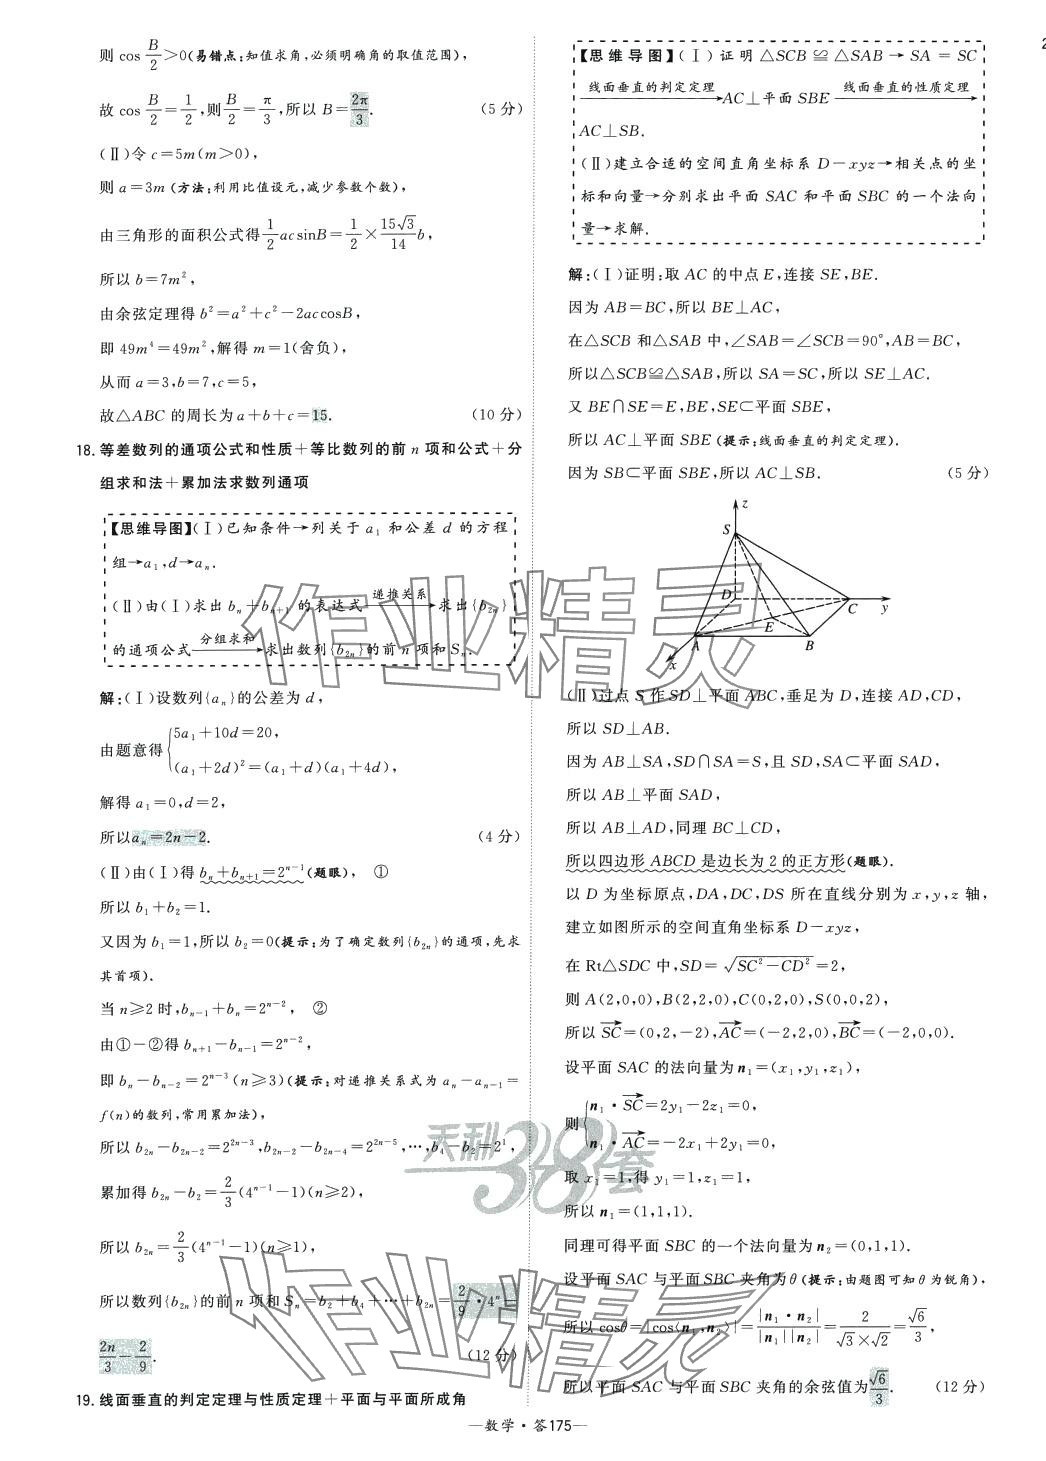 则 cos B/2>0(易错点:知值求角,必须明确角的取值范围),
故 cos B/2=1/2,则 B/2=π/3,所以 B=2π/3. (5 分)
(Ⅱ)令 c=5m(m>0),
则 a=3m (方法:利用比值设元,减少参数个数),
由三角形的面积公式得 1/2 ac sinB=1/2×15√3/14 b,
所以 b=7m²,
由余弦定理得 b²=a²+c²-2accosB,
即 49m⁴=49m²,解得 m=1(舍负),
从而 a=3,b=7,c=5,
故△ABC 的周长为 a+b+c=15. (10 分)
18. 等差数列的通项公式和性质+等比数列的前 n 项和公式+分
组求和法+累加法求数列通项
【思维导图】(Ⅰ)已知条件→列关于 a₁ 和公差 d 的方程
组→a₁,d→aₙ.
(Ⅱ)由(Ⅰ)求出 bₙ+bₙ₊₁ 的表达式 递推关系→求出{b₂ₙ}
的通项公式 分组求和→求出数列{b₂ₙ}的前 n 项和 Sₙ.
解:(Ⅰ)设数列{aₙ}的公差为 d,
由题意得{5a₁+10d=20,
(a₁+2d)²=(a₁+d)(a₁+4d),
解得 a₁=0,d=2,
所以aₙ=2n-2. (4 分)
(Ⅱ)由(Ⅰ)得 bₙ+bₙ₊₁=2ⁿ⁻¹(题眼), ①
所以 b₁+b₂=1.
又因为 b₁=1,所以 b₂=0(提示:为了确定数列{b₂ₙ}的通项,先求
其首项).
当 n≥2 时,bₙ₋₁+bₙ=2ⁿ⁻², ②
由①-②得 bₙ₊₁-bₙ₋₁=2ⁿ⁻²,
即 bₙ-bₙ₋₂=2ⁿ⁻³(n≥3)(提示:对递推关系式为 aₙ-aₙ₋₁=
f(n)的数列,常用累加法),
所以 b₂ₙ-b₂ₙ₋₂=2²ⁿ⁻³,b₂ₙ₋₂-b₂ₙ₋₄=2²ⁿ⁻⁵,…,b₄-b₂=2¹,
累加得 b₂ₙ-b₂=2/3(4ⁿ⁻¹-1)(n≥2),
所以 b₂ₙ=2/3(4ⁿ⁻¹-1)(n≥1),
所以数列{b₂ₙ}的前 n 项和 Sₙ=b₂+b₄+…+b₂ₙ=2/9·4ⁿ-
2n/3-2/9. (12 分)
19. 线面垂直的判定定理与性质定理+平面与平面所成角
【思维导图】(Ⅰ)证明 △SCB ≌ △SAB → SA = SC
线面垂直的判定定理→AC⊥平面 SBE 线面垂直的性质定理→
AC⊥SB.
(Ⅱ)建立合适的空间直角坐标系 D-xyz→相关点的坐
标和向量→分别求出平面 SAC 和平面 SBC 的一个法向
量→求解.
解:(Ⅰ)证明:取 AC 的中点 E,连接 SE,BE.
因为 AB=BC,所以 BE⊥AC,
在△SCB 和△SAB 中,∠SAB=∠SCB=90°,AB=BC,
所以△SCB≌△SAB,所以 SA=SC,所以 SE⊥AC.
又 BE∩SE=E,BE,SE⊂平面 SBE,
所以 AC⊥平面 SBE (提示:线面垂直的判定定理).
因为 SB⊂平面 SBE,所以 AC⊥SB. (5 分)
z
S
D
C
y
E
A
B
x
(Ⅱ)过点 S 作 SD⊥平面 ABC,垂足为 D,连接 AD,CD,
所以 SD⊥AB.
因为 AB⊥SA,SD∩SA=S,且 SD,SA⊂平面 SAD,
所以 AB⊥平面 SAD,
所以 AB⊥AD,同理 BC⊥CD,
所以四边形 ABCD 是边长为 2 的正方形(题眼).
以 D 为坐标原点,DA,DC,DS 所在直线分别为 x,y,z 轴,
建立如图所示的空间直角坐标系 D-xyz,
在 Rt△SDC 中,SD=√(SC²-CD²)=2,
则 A(2,0,0),B(2,2,0),C(0,2,0),S(0,0,2),
所以 SC→=(0,2,-2),AC→=(-2,2,0),BC→=(-2,0,0).
设平面 SAC 的法向量为 n₁=(x₁,y₁,z₁),
则{n₁·SC→=2y₁-2z₁=0,
n₁·AC→=-2x₁+2y₁=0,
取 x₁=1,得 y₁=1,z₁=1,
所以 n₁=(1,1,1).
同理可得平面 SBC 的一个法向量为 n₂=(0,1,1).
设平面 SAC 与平面 SBC 夹角为 θ (提示:由题图可知 θ 为锐角),
所以 cosθ=|cos⟨n₁,n₂⟩|=|n₁·n₂|/|n₁||n₂|=2/(√3×√2)=√6/3,
所以平面 SAC 与平面 SBC 夹角的余弦值为√6/3. (12 分)
—数学·答175—
作业精灵
天利38套
作业精灵
2